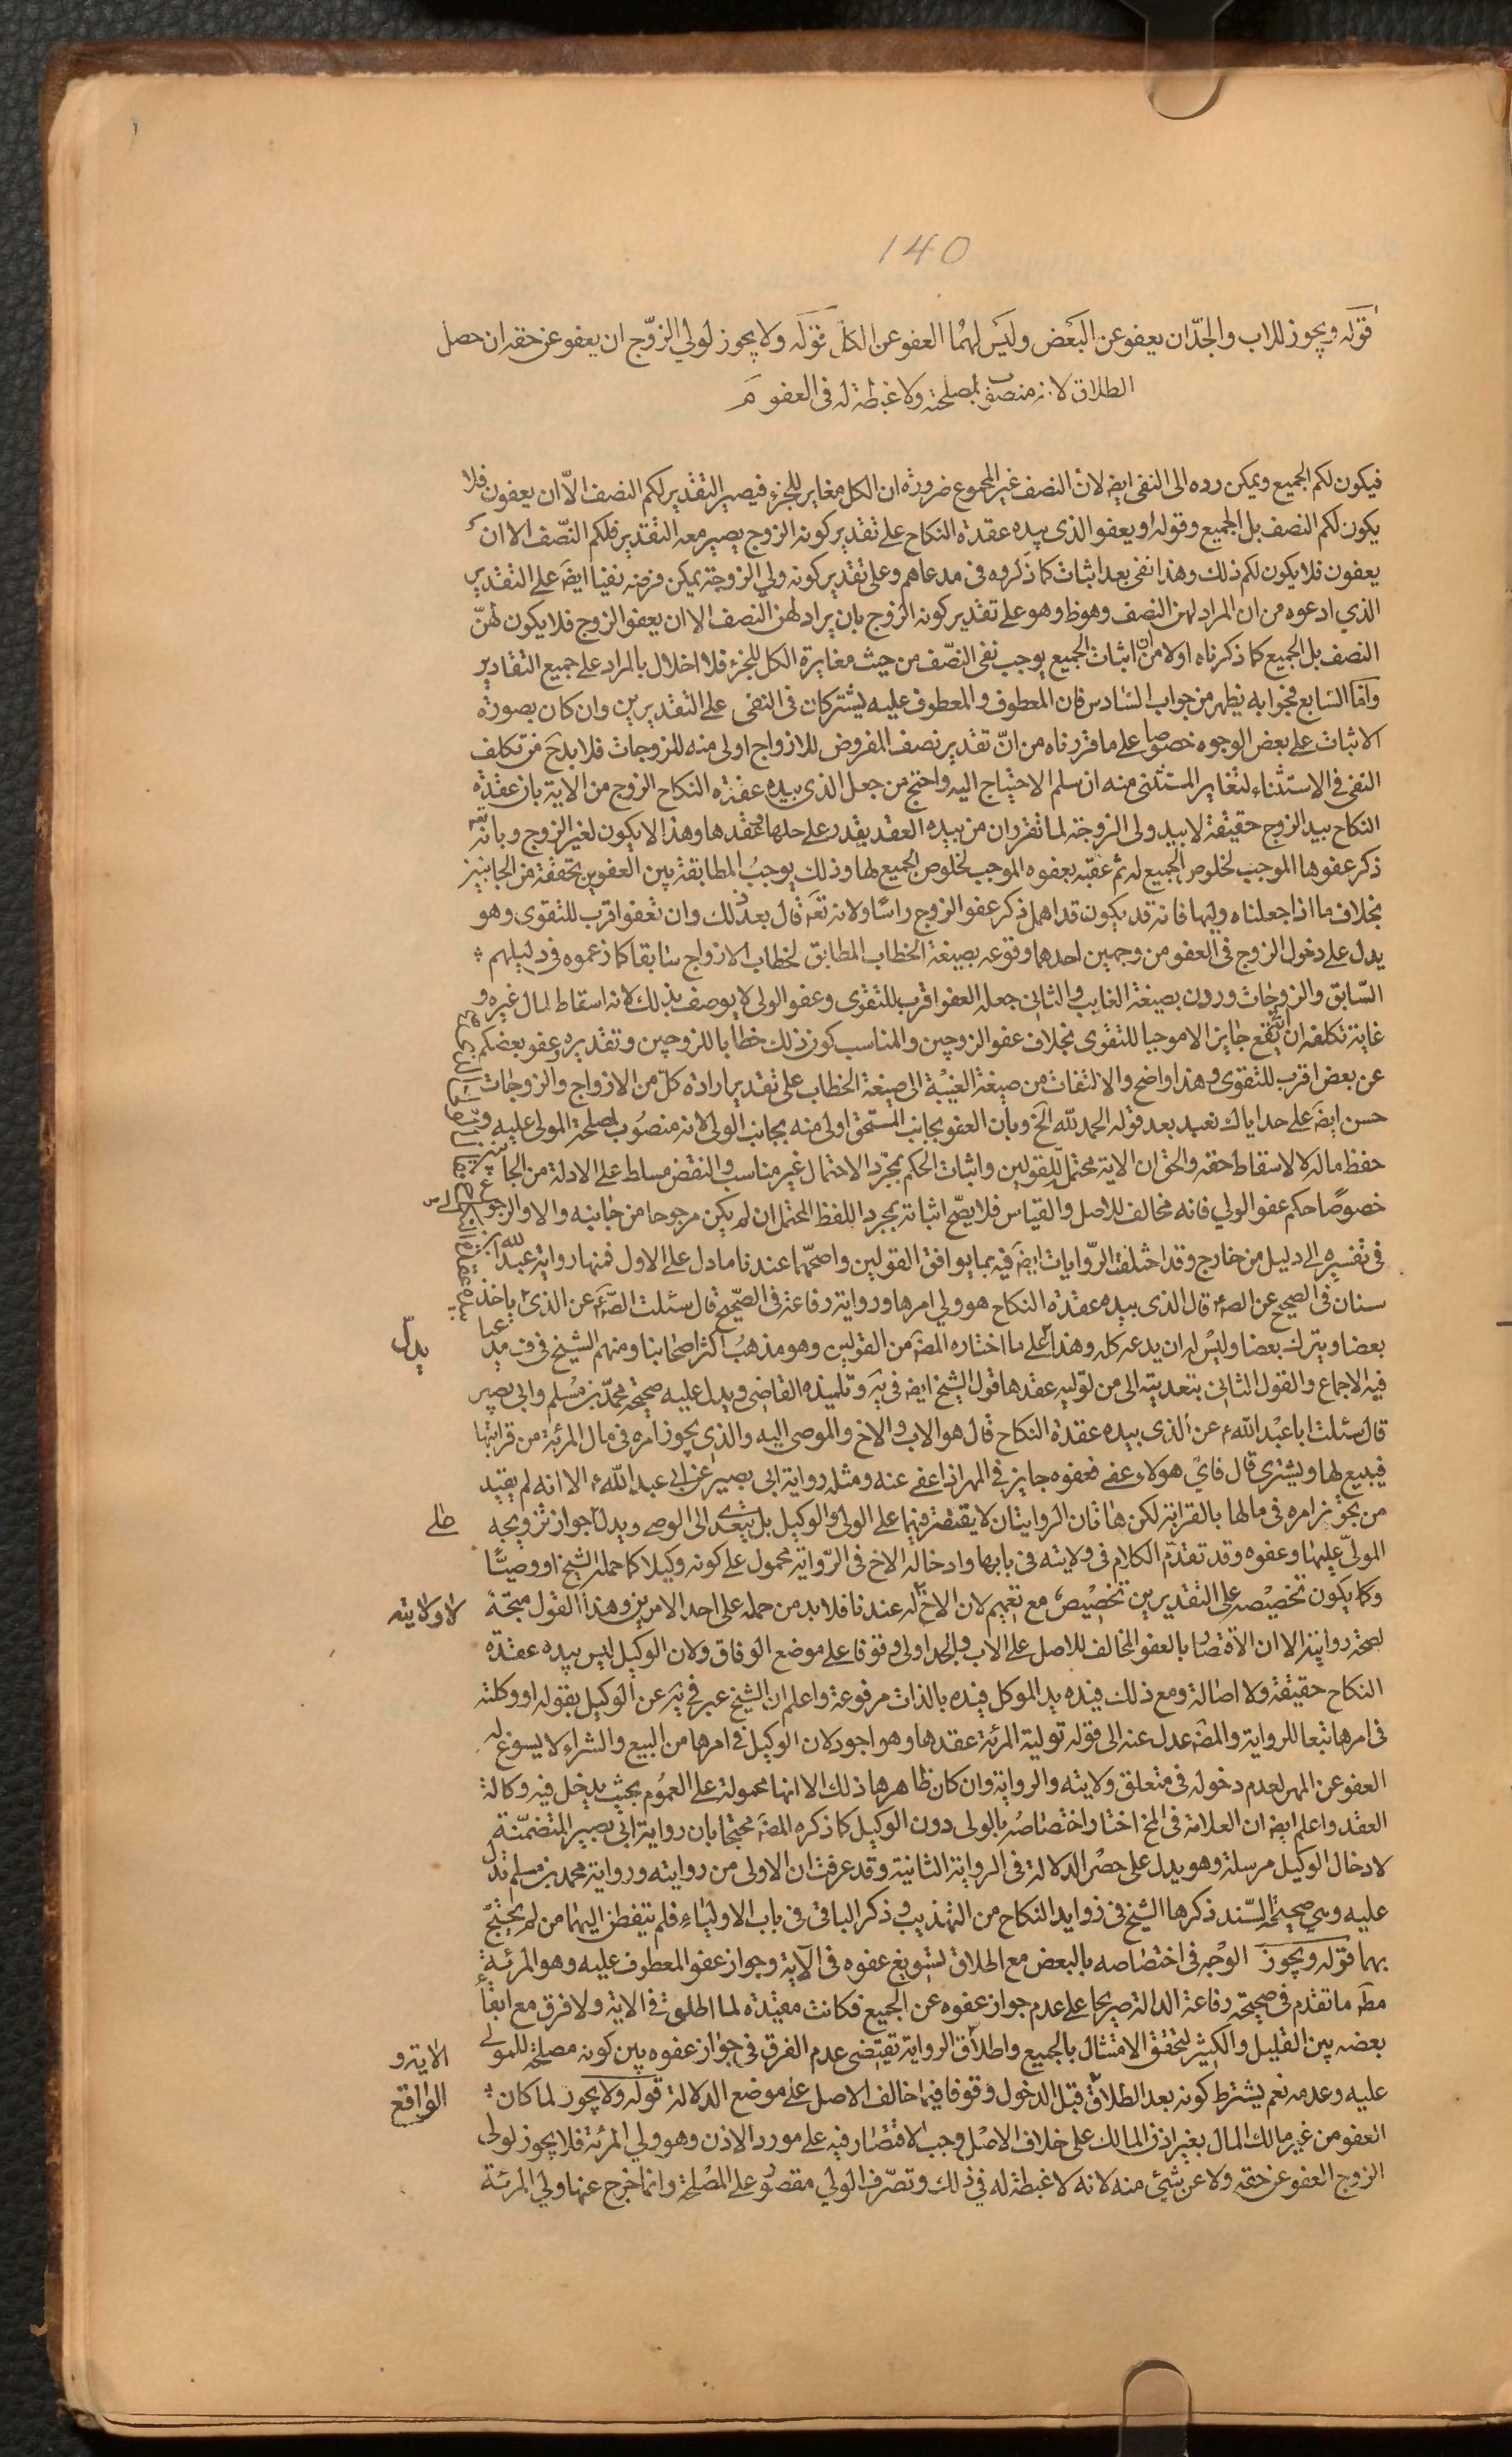 140
قوله ويجوز للاب والجدّ ان يعفو عن البعض وليس لهما العفو عن الكل قوله ولا يجوز لولي الزوّج ان يعفو عن حقه ان حصل
الطلاق لانه منصوب لمصلحته ولا غبطة له فى العفو م
فيكون لكم الجميع ويمكن رده الى النفى ايضا لان النصف غير المجموع ضرورة ان الكل مغاير للجزء فيصير التقدير لكم النصف الاّ ان يعفون فلا
يكون لكم النصف بل الجميع وقوله او يعفو الذى بيده عقدة النكاح على تقدير كونه الزوج يصير معه التقدير فلكم النّصف الا ان
يعفون فلا يكون لكم ذلك وهذا نفى بعد اثبات كما ذكروه فى مدعاهم وعلى تقدير كونه ولى الزوجة يمكن فرضه نفيا ايضا على التقدير
الذي ادعوه من ان المراد لهن النصف وهو ظ وهو على تقدير كونه الزوج بان يراد لهن النصف الا ان يعفو الزوج فلا يكون لهنّ
النصف بل الجميع كما ذكرناه اولا من ان اثبات الجميع يوجب نفى النصّف من حيث مغايرة الكل للجزء فلا اخلال بالمراد على جميع التقادير
وامّا السّابع فجوابه يظهر من جواب السّادس فان المعطوف والمعطوف عليه يشتركان فى النفى على التقديرين وان كان بصورة
الاثبات على بعض الوجوه خصوصا على ما قررناه من انّ تقدير نصف المفروض للازواج اولى منه للزوجات فلا بد ح من تكلف
النفى فى الاستثناء لتغاير المستثنى منه ان سلم الاحتياج اليه واحتج من جعل الذى بيده عقدة النكاح الزوج من الاية بان عقدة
النكاح بيد الزوج حقيقة لا بيد ولى الزوجة لما تقرر ان من بيده العقد يقدر على حلها وعقدها وهذا لا يكون لغير الزوج وبانه تع
ذكر عفوها الموجب لخلوص الجميع له ثم عقبه بعفوه الموجب لخلوص الجميع لها وذلك يوجب المطابقة بين العفوين بتحققه من الجانبين
بخلاف ما اذا جعلناه وليها فانه قد يكون قد اهمل ذكر عفو الزوج راسًا ولانه تع قال بعد ذلك وان تعفوا اقرب للتقوى وهو
يدل على دخول الزوج فى العفو من وجهين احدهما وقوعه بصيغة الخطاب المطابق لخطاب الازواج سابقا كما زعموه فى دليلهم
السّابق والزوجات ورون بصيغة الغايب والثانى جعله العفو اقرب للتقوى وعفو الولى لا يوصف بذلك لانه اسقاط لمال غيره و
غاية تكلفه ان يقع جايزا لا موجبا للتقوى بخلاف عفو الزوجين والمناسب كون ذلك خطابا للزوجين وتقديره وعفو بعضكم
عن بعض اقرب للتقوى وهذا واضح والالتفات من صيغة الغيبة الى صيغة الخطاب على تقدير ارادة كلّ من الازواج والزوجات
حسن ايضا على حد اياك نعبد بعد قوله الحمد لله الخ وبان العفو بجانب المستحق اولى منه بجانب الولى لانه منصوب لمصلحة المولى عليه و
حفظ ماله لا لاسقاط حقه والحق ان الاية محتمل للقولين واثبات الحكم بمجرّد الاحتمال غير مناسب والنقض مسلط على الادلة من الجا
خصوصًا حكم عفو الولي فانه مخالف للاصل والقياس فلا يصحّ اثباته بمجرد اللفظ المحتمل ان لم يكن مرجوحا من جانبه والا والرجوع
فى تفسيره الى دليل من خارج وقد اختلفت الرّوايات ايضا فيه بما يوافق القولين واصحّها عندنا ما دل على الاول فمنها رواية عبد الله بن
سنان فى الصحيح عن الصاء قال الذى بيده عقدة النكاح هو ولي امرها ورواية رفاعة فى الصّحيح قال سئلت الصاء عن الذى ياخذ
بعضا ويترك بعضا وليس له ان يدعه كله وهذا على ما اختاره المصا من القولين وهو مذهب اكثر اصحابنا ومنهم الشيخ فى ف مد عيا
يدل
فيه الاجماع والقول الثانى بتعديته الى من توليه عقدها قول الشيخ ايضا فى يه وتلميذه القاضى ويدل عليه صحيحة محمّد بن مسلم وابي بصير
قال سئلت ابا عبد الله ع عن الذى بيده عقدة النكاح قال هو الاب والاخ والموصى اليه والذى يجوز امره فى مال المرئة من قرابتها
فيبيع لها ويشترى قال فاىّ هولاء عفى فعفوه جايز فى المهر اذا عفى عنه ومثله رواية ابى بصير عن ابى عبد الله ع الا انه لم يقيد
من يجوّز امره فى مالها بالقرابة لكن هاتان الروايتان لا يقتصر فيهما على الولى والوكيل بل يتعدى الى الوصى ويدل جواز تزويجه
على
المولّى عليها وعفوه وقد تقدّم الكلام فى ولايته فى بابها وادخاله الاخ فى الرّواية محمول على كونه وكيلا كما حمله الشيخ او وصيًّا
وكما يكون تخصيصه على التقديرين تخصيص مع تعميم لان الاخ له عندنا فلا بد من حمله على احد الامرين وهذا القول متجه
لا ولاية
لصحة روايته الا ان الاقتصار بالعفو المخالف للاصل على الاب والجد اولى وقوفا على موضع الوفاق ولان الوكيل ليس بيده عقدة
النكاح حقيقة ولا اصالة ومع ذلك فيده يد الموكل فيده بالذات مرفوعة واعلم ان الشيخ عبر فى يه عن الوكيل بقوله او وكلته
فى امرها تبعا للرواية والمصا عدل عنه الى قوله تولية المرئة عقدها وهو اجود لان الوكيل فى امرها من البيع والشراء لا يسوغ له
العفو عن المهر لعدم دخوله فى متعلق ولايته والرواية وان كان ظاهرها ذلك الا انها محمولة على العموم بحيث يدخل فيه وكالة
العقد واعلم ايضا ان العلامة فى المخ اختار اختصاصه بالولى دون الوكيل كما ذكره المصا محتجا بان رواية ابى بصير المتضمّنة
لادخال الوكيل مرسلة وهو يدل على حصر الدلالة فى الرواية الثانية وقد عرفت ان الاولى من روايته ورواية محمد بن مسلم تدل
عليه وهي صحيحة السّند ذكرها الشيخ فى زوايد النكاح من التهذيب وذكر الباقى فى باب الاولياء فلم يتفطن اليهما من لم يحتج
بهما قوله ويجوز الوجه فى اختصاصه بالبعض مع اطلاق تسويغ عفوه فى الآية وجواز عفو المعطوف عليه وهو المرئة
مطا ما تقدم فى صحيحة رفاعة الدالة صريحا على عدم جواز عفوه عن الجميع فكانت مقيّدة لما اطلق فى الاية ولا فرق مع ابقاء
بعضه بين القليل والكثير لتحقق الامتثال بالجميع واطلاق الرواية تقتضى عدم الفرق فى جواز عفوه بين كونه مصلحة للمولى
الاية و
عليه وعدمه نعم يشترط كونه بعد الطلاق قبل الدخول وقوفا فيما خالف الاصل على موضع الدلالة قوله ولا يجوز لما كان
الواقع
العفو من غير مالك المال بغير اذن المالك على خلاف الاصل وجب الاقتصار فيه على مورد الاذن وهو ولي المرئة فلا يجوز لولى
الزوج العفو عن حقه ولا عن شيئ منه لانه لا غبطة له في ذلك وتصرّف الولي مقصور على المصلحة وانما خرج عنها ولي المرئة